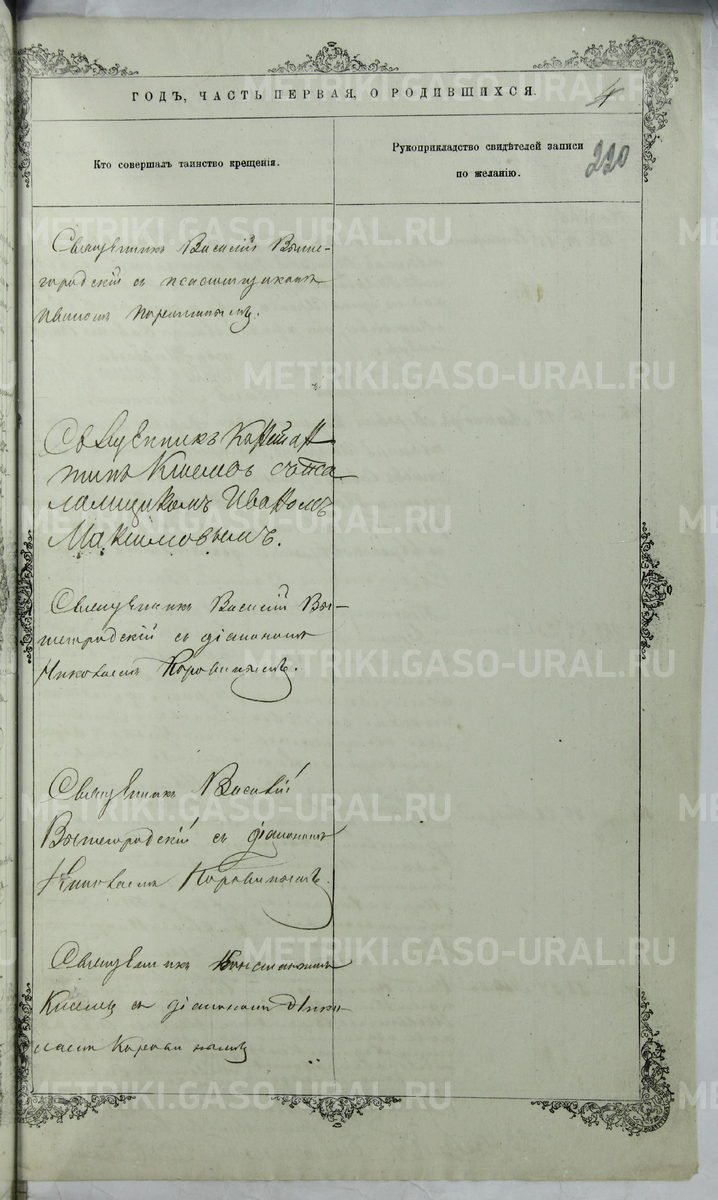 ГОДЪ, ЧАСТЬ ПЕРВАЯ, О РОДИВШИХСЯ.
4
Кто совершалъ таинство крещенія.
Рукоприкладство свидѣтелей записи
по желанію.
220
Священникъ Василій Выше-
городскій съ псаломщикомъ
Иваномъ
Священникъ Констан
тинъ Киселевъ съ пса
ломщикомъ Иваномъ
Максимовымъ.
Священникъ Василій Вы-
шегородскій съ діакономъ
Николаемъ Коровинымъ.
Священникъ Василій
Вышегородскій съ діакономъ
Николаемъ Коровинымъ.
Священникъ Константинъ
Киселевъ съ діакономъ Нико
лаемъ Коровинымъ
METRIKI.GASO-URAL.RU